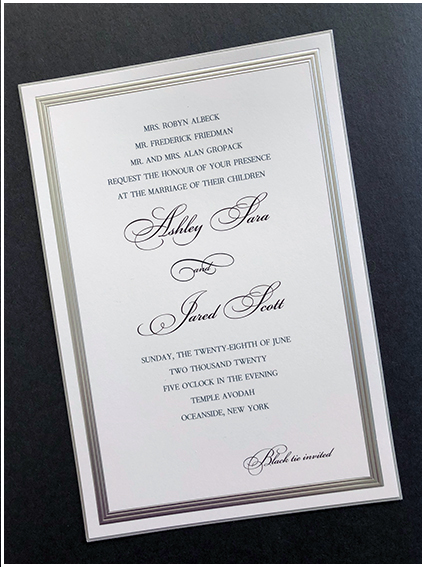 MRS. ROBYN ALBECK
MR. FREDERICK FRIEDMAN
MR. AND MRS. ALAN GROPACK
REQUEST THE HONOUR OF YOUR PRESENCE
AT THE MARRIAGE OF THEIR CHILDREN
Ashley Sara
and
Jared Scott
SUNDAY, THE TWENTY-EIGHTH OF JUNE
TWO THOUSAND TWENTY
FIVE O'CLOCK IN THE EVENING
TEMPLE AVODAH
OCEANSIDE, NEW YORK
Black tie invited